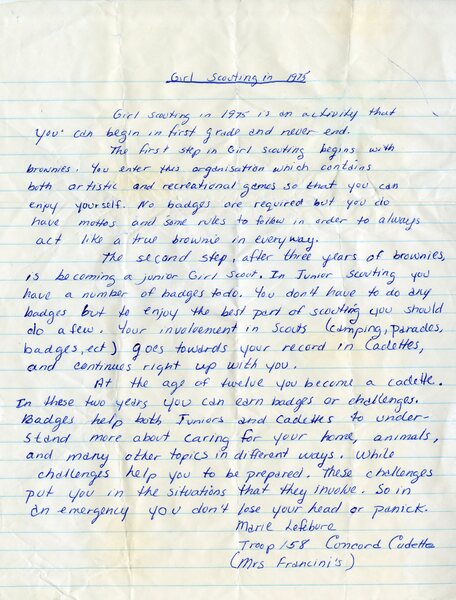 Girl Scouting in 1975
Girl scouting in 1975 is an activity that
you can begin in first grade and never end.
The first step in Girl Scouting begins with
brownies. You enter this organisation which contains
both artistic and recreational games so that you can
enjoy yourself. No badges are required but you do
have mottos and some rules to follow in order to always
act like a true brownie in everyway.
The second step, after three years of brownies,
is becoming a junior Girl Scout. In Junior Scouting you
have a number of badges to do. You don't have to do any
badges but to enjoy the best part of scouting you should
do a few. Your involvement in Scouts (camping, parades,
badges, ect.) goes towards your record in Cadettes,
and continues right up with you.
At the age of twelve you become a cadette.
In these two years you can earn badges or challenges.
Badges help both Juniors and Cadettes to under-
stand more about caring for your home, animals,
and many other topics in different ways. While
challenges help you to be prepared. These challenges
put you in the situations that they involve. So in
an emergency you don't lose your head or panick.
Marie Lefebure
Troop 158 Concord Cadette
(Mrs Francini's)